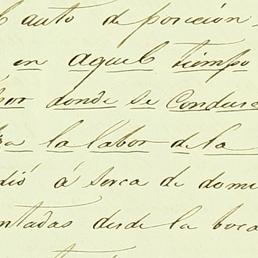 auto de posecion
en aquel tiempo
por donde se Conduse
la labor de la
dió á serca de domi
ntadas desde la boca